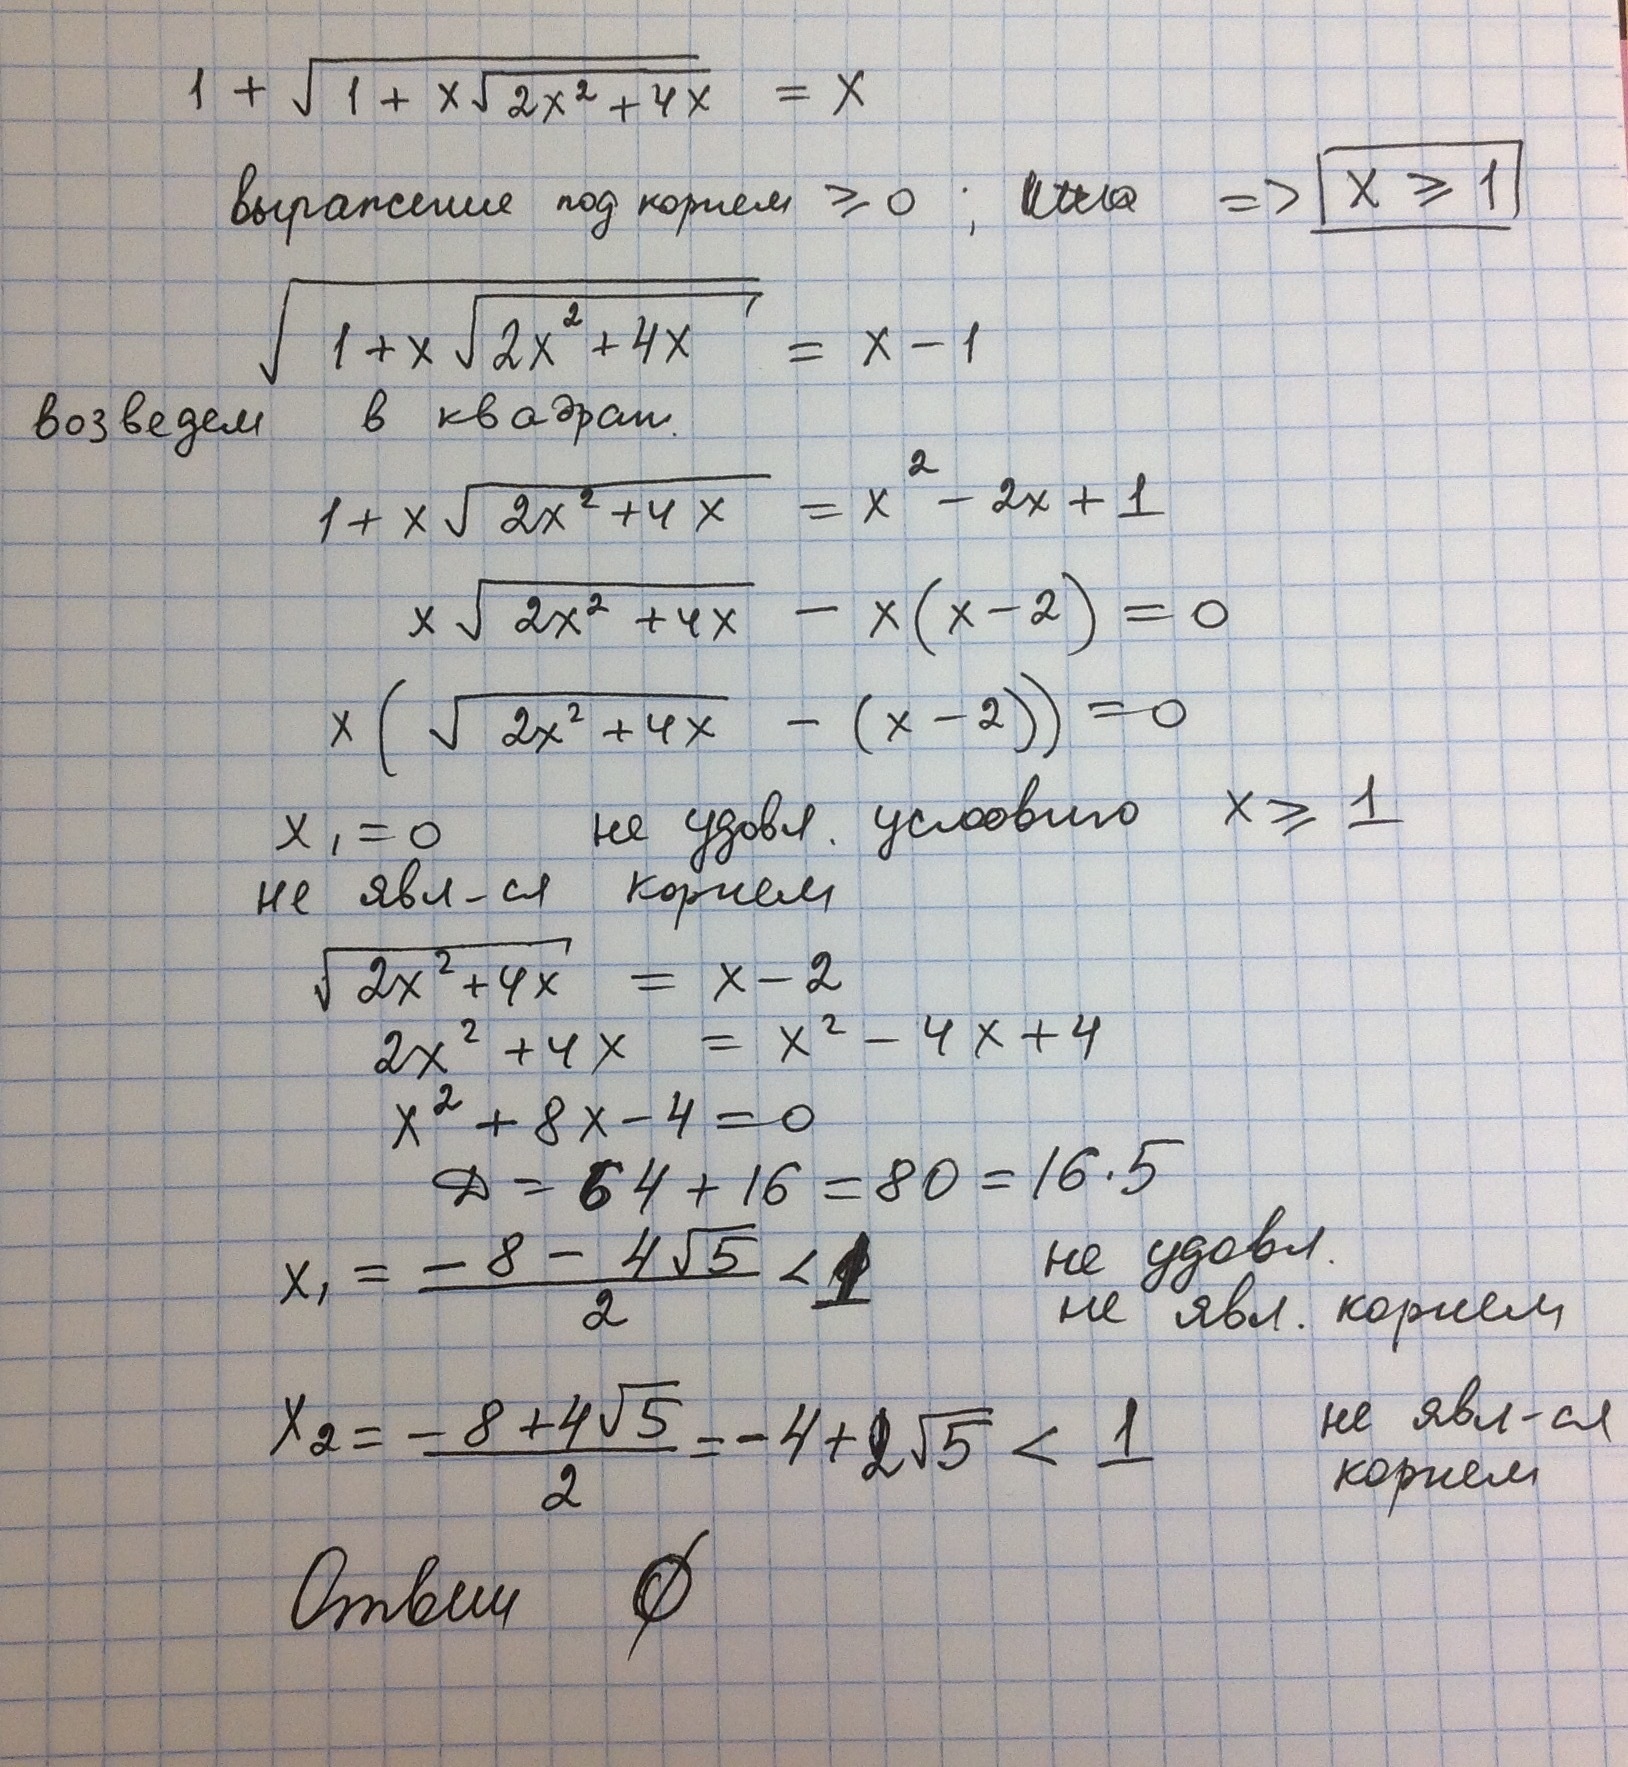 1 + √(1 + x√(2x² + 4x)) = x
выражение под корнем ≥ 0 ; => x ≥ 1
√(1 + x√(2x² + 4x)) = x - 1
возведем в квадрат.
1 + x√(2x² + 4x) = x² - 2x + 1
x√(2x² + 4x) - x(x - 2) = 0
x(√(2x² + 4x) - (x - 2)) = 0
x₁ = 0 не удовл. условию x ≥ 1
не явл-ся корнем
√(2x² + 4x) = x - 2
2x² + 4x = x² - 4x + 4
x² + 8x - 4 = 0
D = 64 + 16 = 80 = 16·5
x₁ = (-8 - 4√5)/2 < 1 не удовл.
не явл. корнем
x₂ = (-8 + 4√5)/2 = -4 + 2√5 < 1 не явл-ся
корнем
Ответ ∅